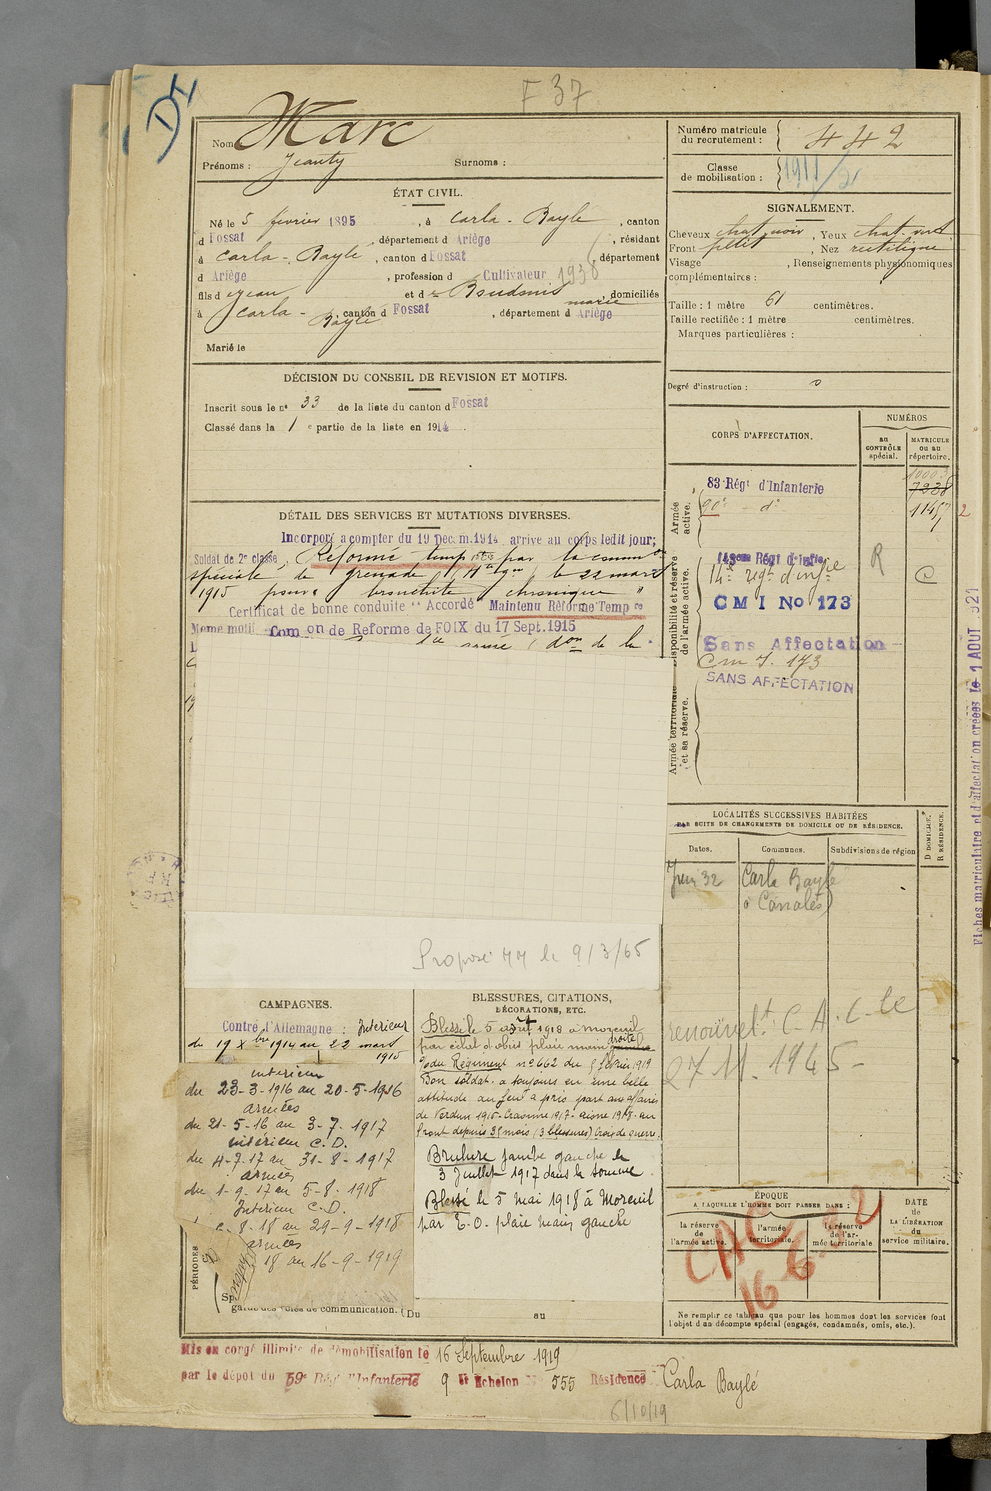 F 37
Nom Marc
Prénoms : Jeanty Surnoms :
ÉTAT CIVIL.
Né le 5 février 1895, à Carla-Bayle, canton
d Fossat, département d Ariège, résidant
à Carla-Bayle, canton d Fossat, département
d Ariège, profession d Cultivateur 1938
fils d Jean et d Boudonis marie, domiciliés
à Carla-Bayle, canton d Fossat, département d Ariège
Marié le
DÉCISION DU CONSEIL DE REVISION ET MOTIFS.
Inscrit sous le no 33 de la liste du canton d Fossat
Classé dans la 1 e partie de la liste en 1914.
DÉTAIL DES SERVICES ET MUTATIONS DIVERSES.
Incorporé a compter du 19 Decem. 1914 arrive au corps ledit jour;
Soldat de 2e classe, Réformé temp re par la comm on
spéciale de le 22 mars
1915 pour bronchite chronique "
Certificat de bonne conduite "Accordé Maintenu Réforme Temp re
Meme motif Com on de Reforme de FOIX du 17 Sept. 1915
de la
Proposé MM le 9/3/65
CAMPAGNES.
Contre l'Allemagne : Intérieur
du 19 Xbre 1914 au 22 mars
1915
intérieur
du 23-3-1916 au 20-5-1916
armées
du 21-5-16 au 3-7-1917
intérieur C.D.
du 4-7-17 au 31-8-1917
armées
du 1-9-17 au 5-8-1918
Intérieur C.D.
6-8-18 au 29-9-1918
armées
18 au 16-9-1919
PÉRIODES
garde des voies de communication. (Du au
BLESSURES, CITATIONS,
DÉCORATIONS, ETC.
Blessé le 5 août 1918 à moreuil
par éclat d'obus plaie main gauche droite
o/o du Régiment no 662 du 9 février 1919
Bon soldat a toujours eu une belle
attitude au feu a pris part aux affaires
de Verdun 1916-Craonne 1917-aisne 1918-au
front depuis 35 mois (3 blessures) Croix de guerre.
Brulure jambe gauche le
3 Juillet 1917 dans la somme
Blessé le 5 mai 1918 à Moreuil
par E.O. plaie main gauche
Numéro matricule
du recrutement : 442
Classe
de mobilisation : 1911/2
SIGNALEMENT.
Cheveux chat noir, Yeux chat. vert
Front petit, Nez rectiligne
Visage, Renseignements physionomiques
complémentaires :
Taille : 1 mètre 61 centimètres.
Taille rectifiée : 1 mètre centimètres.
Marques particulières :
Degré d'instruction : 0
CORPS D'AFFECTATION.
NUMÉROS
au
CONTRÔLE
spécial.
MATRICULE
ou au
répertoire.
Armée
active.
83 Régt d'Infanterie
10003
7338
90e - do
11457
2
Disponibilité et réserve
de l'armée active.
Régt d'Infie
14e régt d'infie
R
C
CMI No 173
Sans Affectation
Cm I. 173
SANS AFFECTATION
Armée territoriale
et sa réserve.
Fiches matriculaire et d'affectation créées le 1 AOUT 921
LOCALITÉS SUCCESSIVES HABITÉES
PAR SUITE DE CHANGEMENTS DE DOMICILE OU DE RÉSIDENCE.
Dates. Communes. Subdivisions de région
D DOMICILE.
R RÉSIDENCE.
Juin 32 Carla Bayle
à Canalès
renouvelt C.A.C. le
27.11.1945
ÉPOQUE
A LAQUELLE L'HOMME DOIT PASSER DANS :
la réserve
de
l'armée active.
l'armée
territoriale.
la réserve
de l'ar-
mée territoriale
DATE
de
LA LIBÉRATION
du
service militaire.
CAC
16 6 32
Ne remplir ce tableau que pour les hommes dont les services font
l'objet d'un décompte spécial (engagés, condamnés, omis, etc.).
Mis en congé illimité de démobilisation le 16 Septembre 1919
par le dépot du 59e Régt d'Infanterie 9 e Echelon No 555 Résidence Carla Baylé
6/10/19